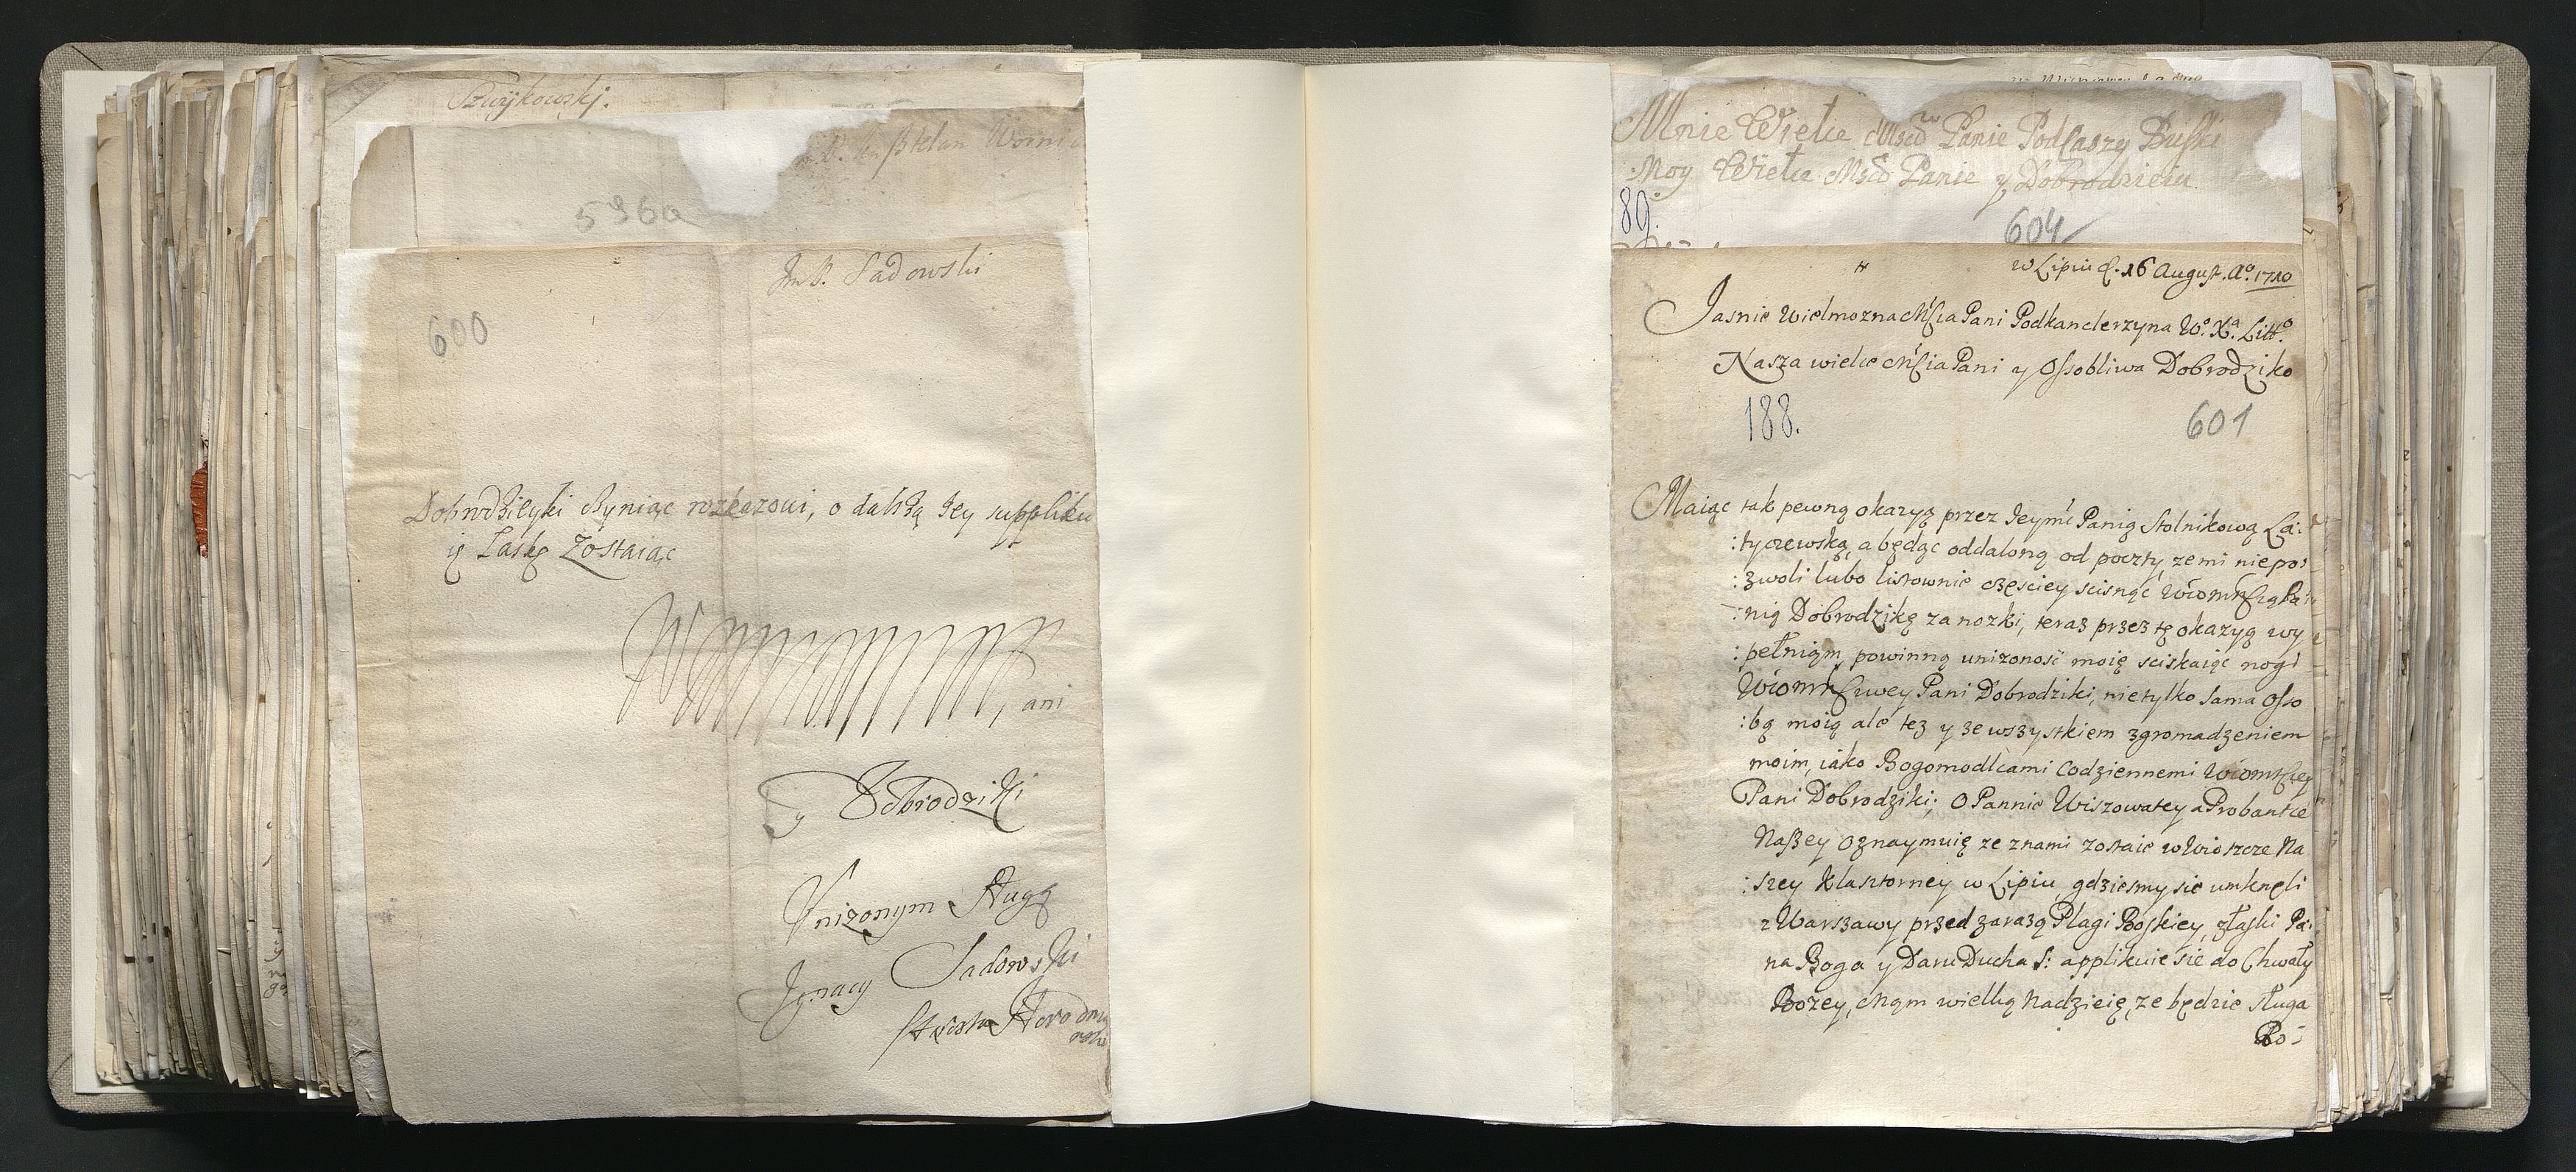 Bwykowskj.
Kasztelan
596a
Im P. Sadowski
600
Dobrodzieyki czyniąc rozkazowi, o dalszą Jey suppliku
ię Łaskę Zostaiąc
ani
y Dobrodziki
Vniżonym Sługą
Ignacy Sadowski
Mnie Wielce Mścw Panie Podczaszy Buski
Moy Wielce Mśco Panie y Dobrodzieiu.
89.
604
w Lipiu d. 16 August. Ao. 1710
Jasnie Wielmozna Mścia Pani Podkanclerzyna W.o X.a Litt.o
Nasza wielce Mścia Pani y Ossobliwa Dobrodziko
188.
601
Maiąc tak pewną okazyą przez Jeymć Panią Stolnikową La:
:tyczewską, a będąc oddaloną od poczty, ze mi niepo:
:zwoli lubo listownie częsciey scisnąć WiomMścią Pa:
:nią Dobrodzikę za nozki, teraz przez tę okazyą wy
:pełnięm, powinną unizonosć moię sciskaiąc nogi
WiomMściwey Pani Dobrodziki, nietylko sama Osso
:bą moią ale tez y ze wszystkiem zgromadzeniem
moim, iako Bogomodlcami Codziennemi WiomMściey
Pani Dobrodziki; O Pannie Wiszowatey a Probantce
Naszey Oznaymuię ze znami zostaie w Wioszcze Na
:szey Klasztorney w Lipiu, gdziesmy się umknęli
z Warszawy przed zarazą Plagi Boskiey, z łaski Pa:
na Boga y Daru Ducha S: applikuie się do Chwały
Bożey, Mąm wielką Nadzieię, ze będzie sługa
Bo: